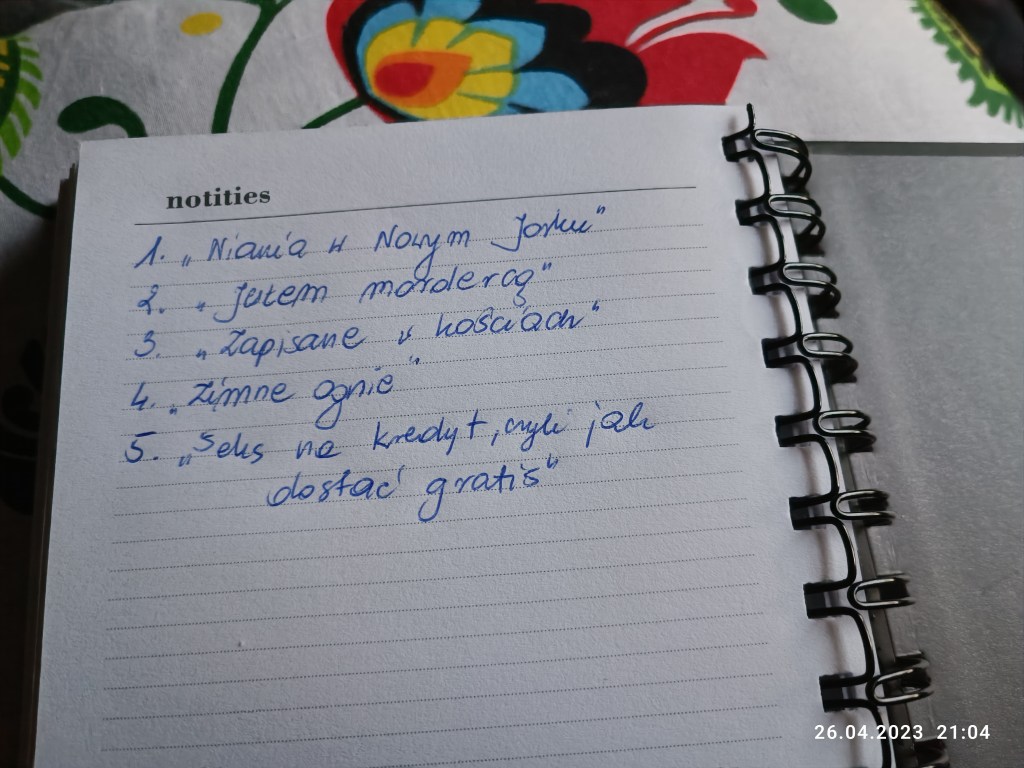 notities
1. „Niania w Nowym Jorku"
2. „Jutem mordercą"
3. „Zapisane w kościach"
4. „Zimne ognie"
5. „Seks na kredyt, czyli jak
dostać gratis"
26.04.2023 21:04